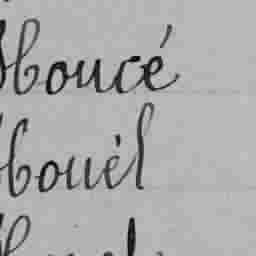 Houcé
Houël